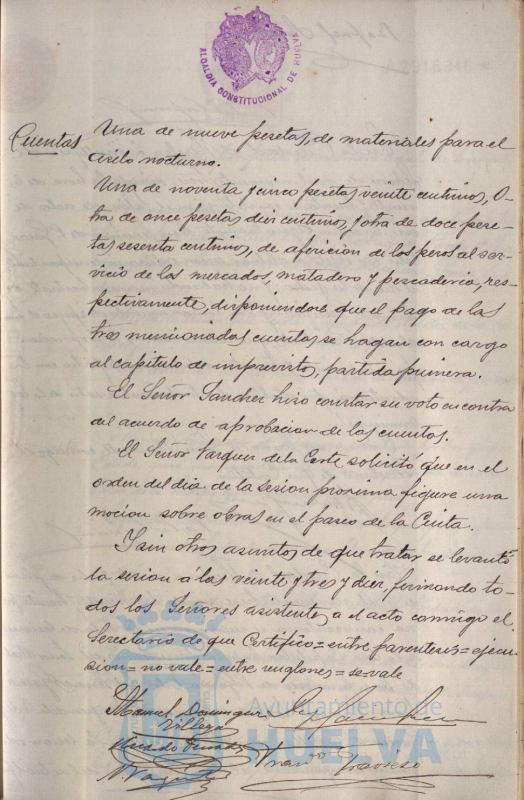 ALCALDIA CONSTITUCIONAL DE HUELVA
Cuentas
Una de nueve pesetas, de materiales para el
asilo nocturno.
Una de noventa y cinco pesetas veinte centimos, O-
tra de once pesetas diez centimos, y otra de doce pese-
tas sesenta centimos, de afericion de los pesos al ser-
vicio de los mercados, matadero y pescaderia, res-
pectivamente, disponiendose que el pago de las
tres mencionadas cuentas se hagan con cargo
al capitulo de imprevistos, partida primera.
El Señor Sanchez hizo constar su voto en contra
del acuerdo de aprobacion de las cuentas.
El Señor Vazquez de la Corte solicitó que en el
orden del dia de la sesion proxima figure una
mocion sobre obras en el paseo de la Cinta.
Y sin otros asuntos de que tratar se levantó
la sesion á las veinte y tres y diez, firmando to-
dos los Señores asistentes a el acto conmigo el
Secretario de que Certifico = entre parentesis = ejecu-
sion = no vale = entre renglones = se vale
Manuel Dominguez
Ayuntamiento de
HUELVA